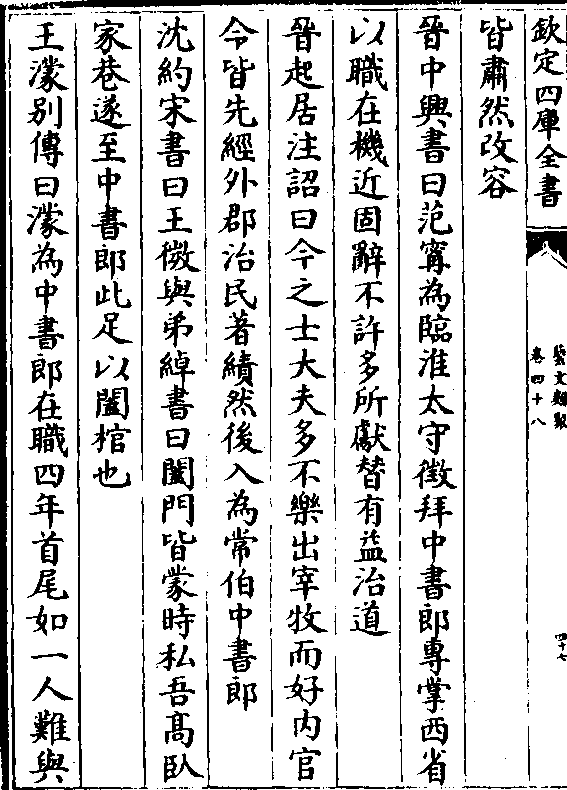 欽定四庫全書
藝文類聚
卷四十八
四十七
皆肅然改容
晉中興書曰范甯為臨淮太守徵拜中書郎專掌西省
以職在機近固辭不許多所獻替有益治道
晉起居注詔曰今之士大夫多不樂出宰牧而好內官
令皆先經外郡治民著績然後入為常伯中書郎
沈約宋書曰王微與弟綽書曰闔門皆蒙時私吾髙臥
家巷遂至中書郎此足以闔棺也
王濛别傳曰濛為中書郎在職四年首尾如一人難與